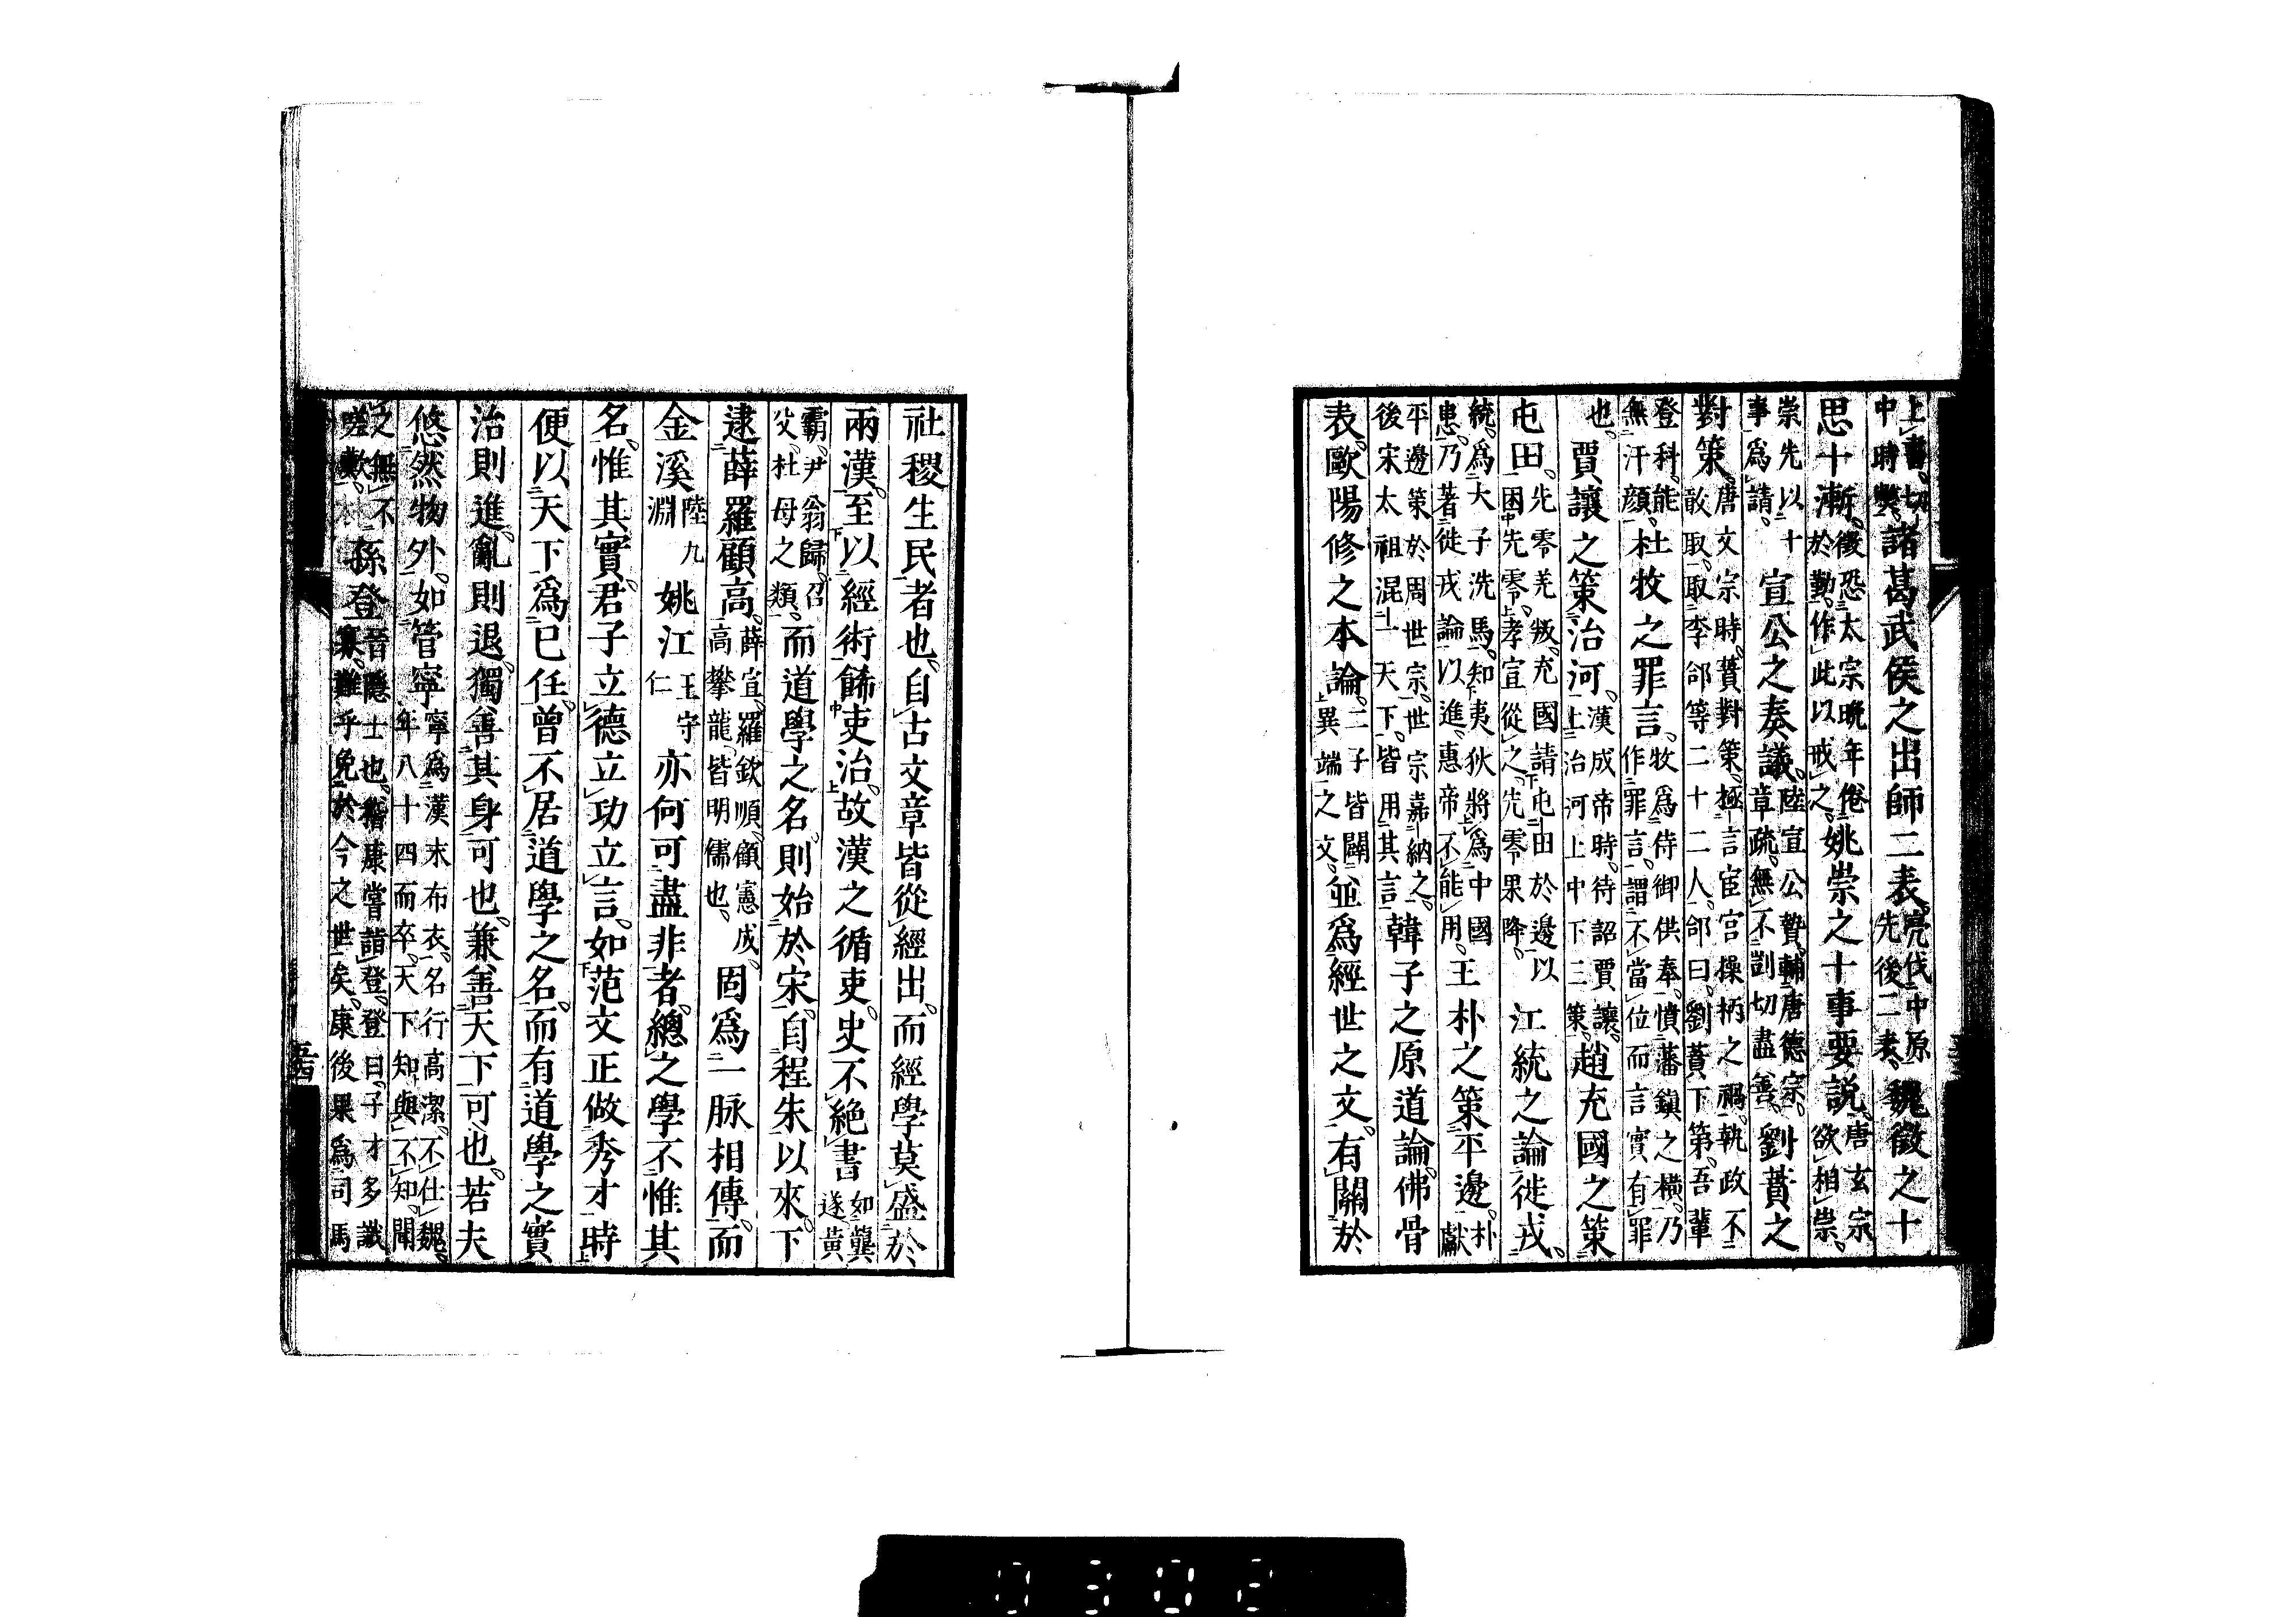 上書。切中時弊。諸葛武侯之出師二表。亮伐中原先後二表。魏徵之十
思十漸。徵恐太宗晩年倦於勤。作此以戒之。姚崇之十事要説。唐玄宗欲相崇。
崇先以十事爲請。宣公之奏議。陸宣公贄。輔唐德宗。章疏無不剴切盡善。劉蕡之
對策。唐文宗時。蕡對策。極言宦官操柄之禍。執政不敢取。取李郃等二十二人。郃曰。劉蕡下第。吾輩
登科。能無汗顔。杜牧之罪言。牧爲侍御供奉。憤藩鎮之横。乃作罪言。謂不當位而言實有罪
也。賈讓之策治河。漢成帝時。待詔賈讓。上治河上中下三策。趙充國之策
屯田。先零羌叛。充國請屯田於邊以困先零。孝宣從之。先零果降。江統之論徙戎。
統爲太子洗馬。知夷狄將爲中國患。乃著徙戎論以進。惠帝不能用。王朴之策平邊。朴獻
平邊策於周世宗。世宗嘉納之。後宋太祖混一天下。皆用其言。韓子之原道論。佛骨
表。歐陽修之本論。二子皆闢異端之文。並爲經世之文。有關於
社稷生民者也。自古文章皆從經出。而經學莫盛於
兩漢。至以經術餙吏治。故漢之循吏。史不絶書如龔遂黄
霸。尹翁歸。召父。杜母之類。而道學之名。則始於宋。自程朱以來。下
逮薛羅顧高。薛宣。羅欽順。顧憲成。高攀龍。皆明儒也。固爲一脉相傳。而
金溪陸九淵姚江王守仁亦何可盡非者。總之學不惟其
名。惟其實。君子立德立功立言。如范文正做秀才時
便以天下爲已任。曾不居道學之名。而有道學之實
治則進。亂則退。獨善其身可也。兼善天下可也。若夫
悠然物外。如管寧寧爲漢末布衣。名行高潔。不仕魏。年八十四而卒。天下知與不知。聞
之無不嗟歎。孫登晉隱士也。嵇康嘗詣登。登曰。子才多識寡。難乎免於今之世矣。康後果爲司馬
五十四
0302